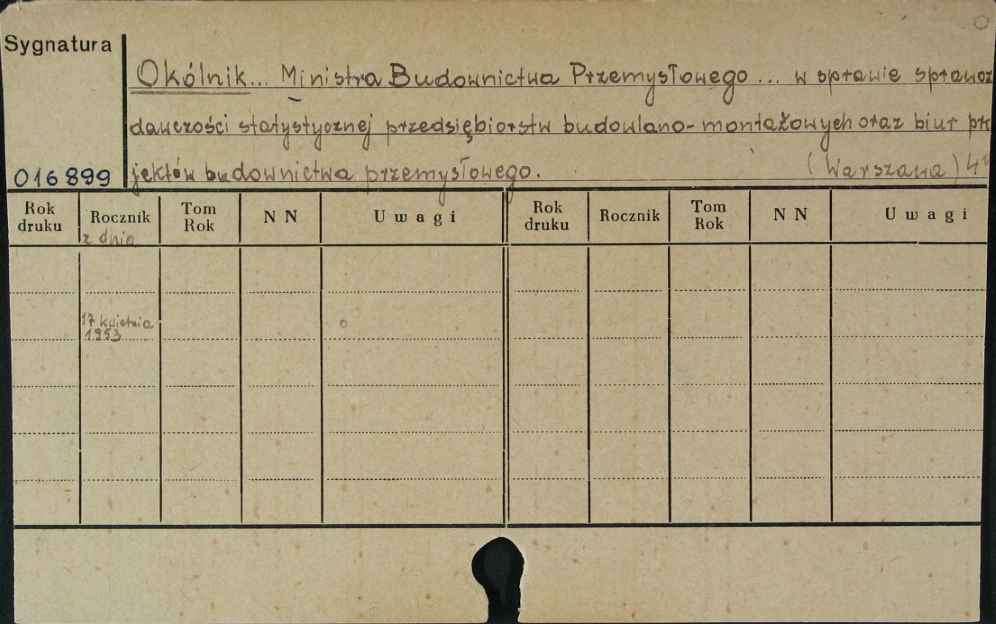 Sygnatura
Okólnik... Ministra Budownictwa Przemysłowego ... w sprawie sprawoz
dawczości statystycznej przedsiębiorstw budowlano-montażowych oraz biur pr
016899 jektów budownictwa przemysłowego. (Warszawa) 4°
Rok druku Rocznik Tom Rok NN Uwagi Rok druku Rocznik Tom Rok NN Uwagi
z dnia
17 kwietnia
1953